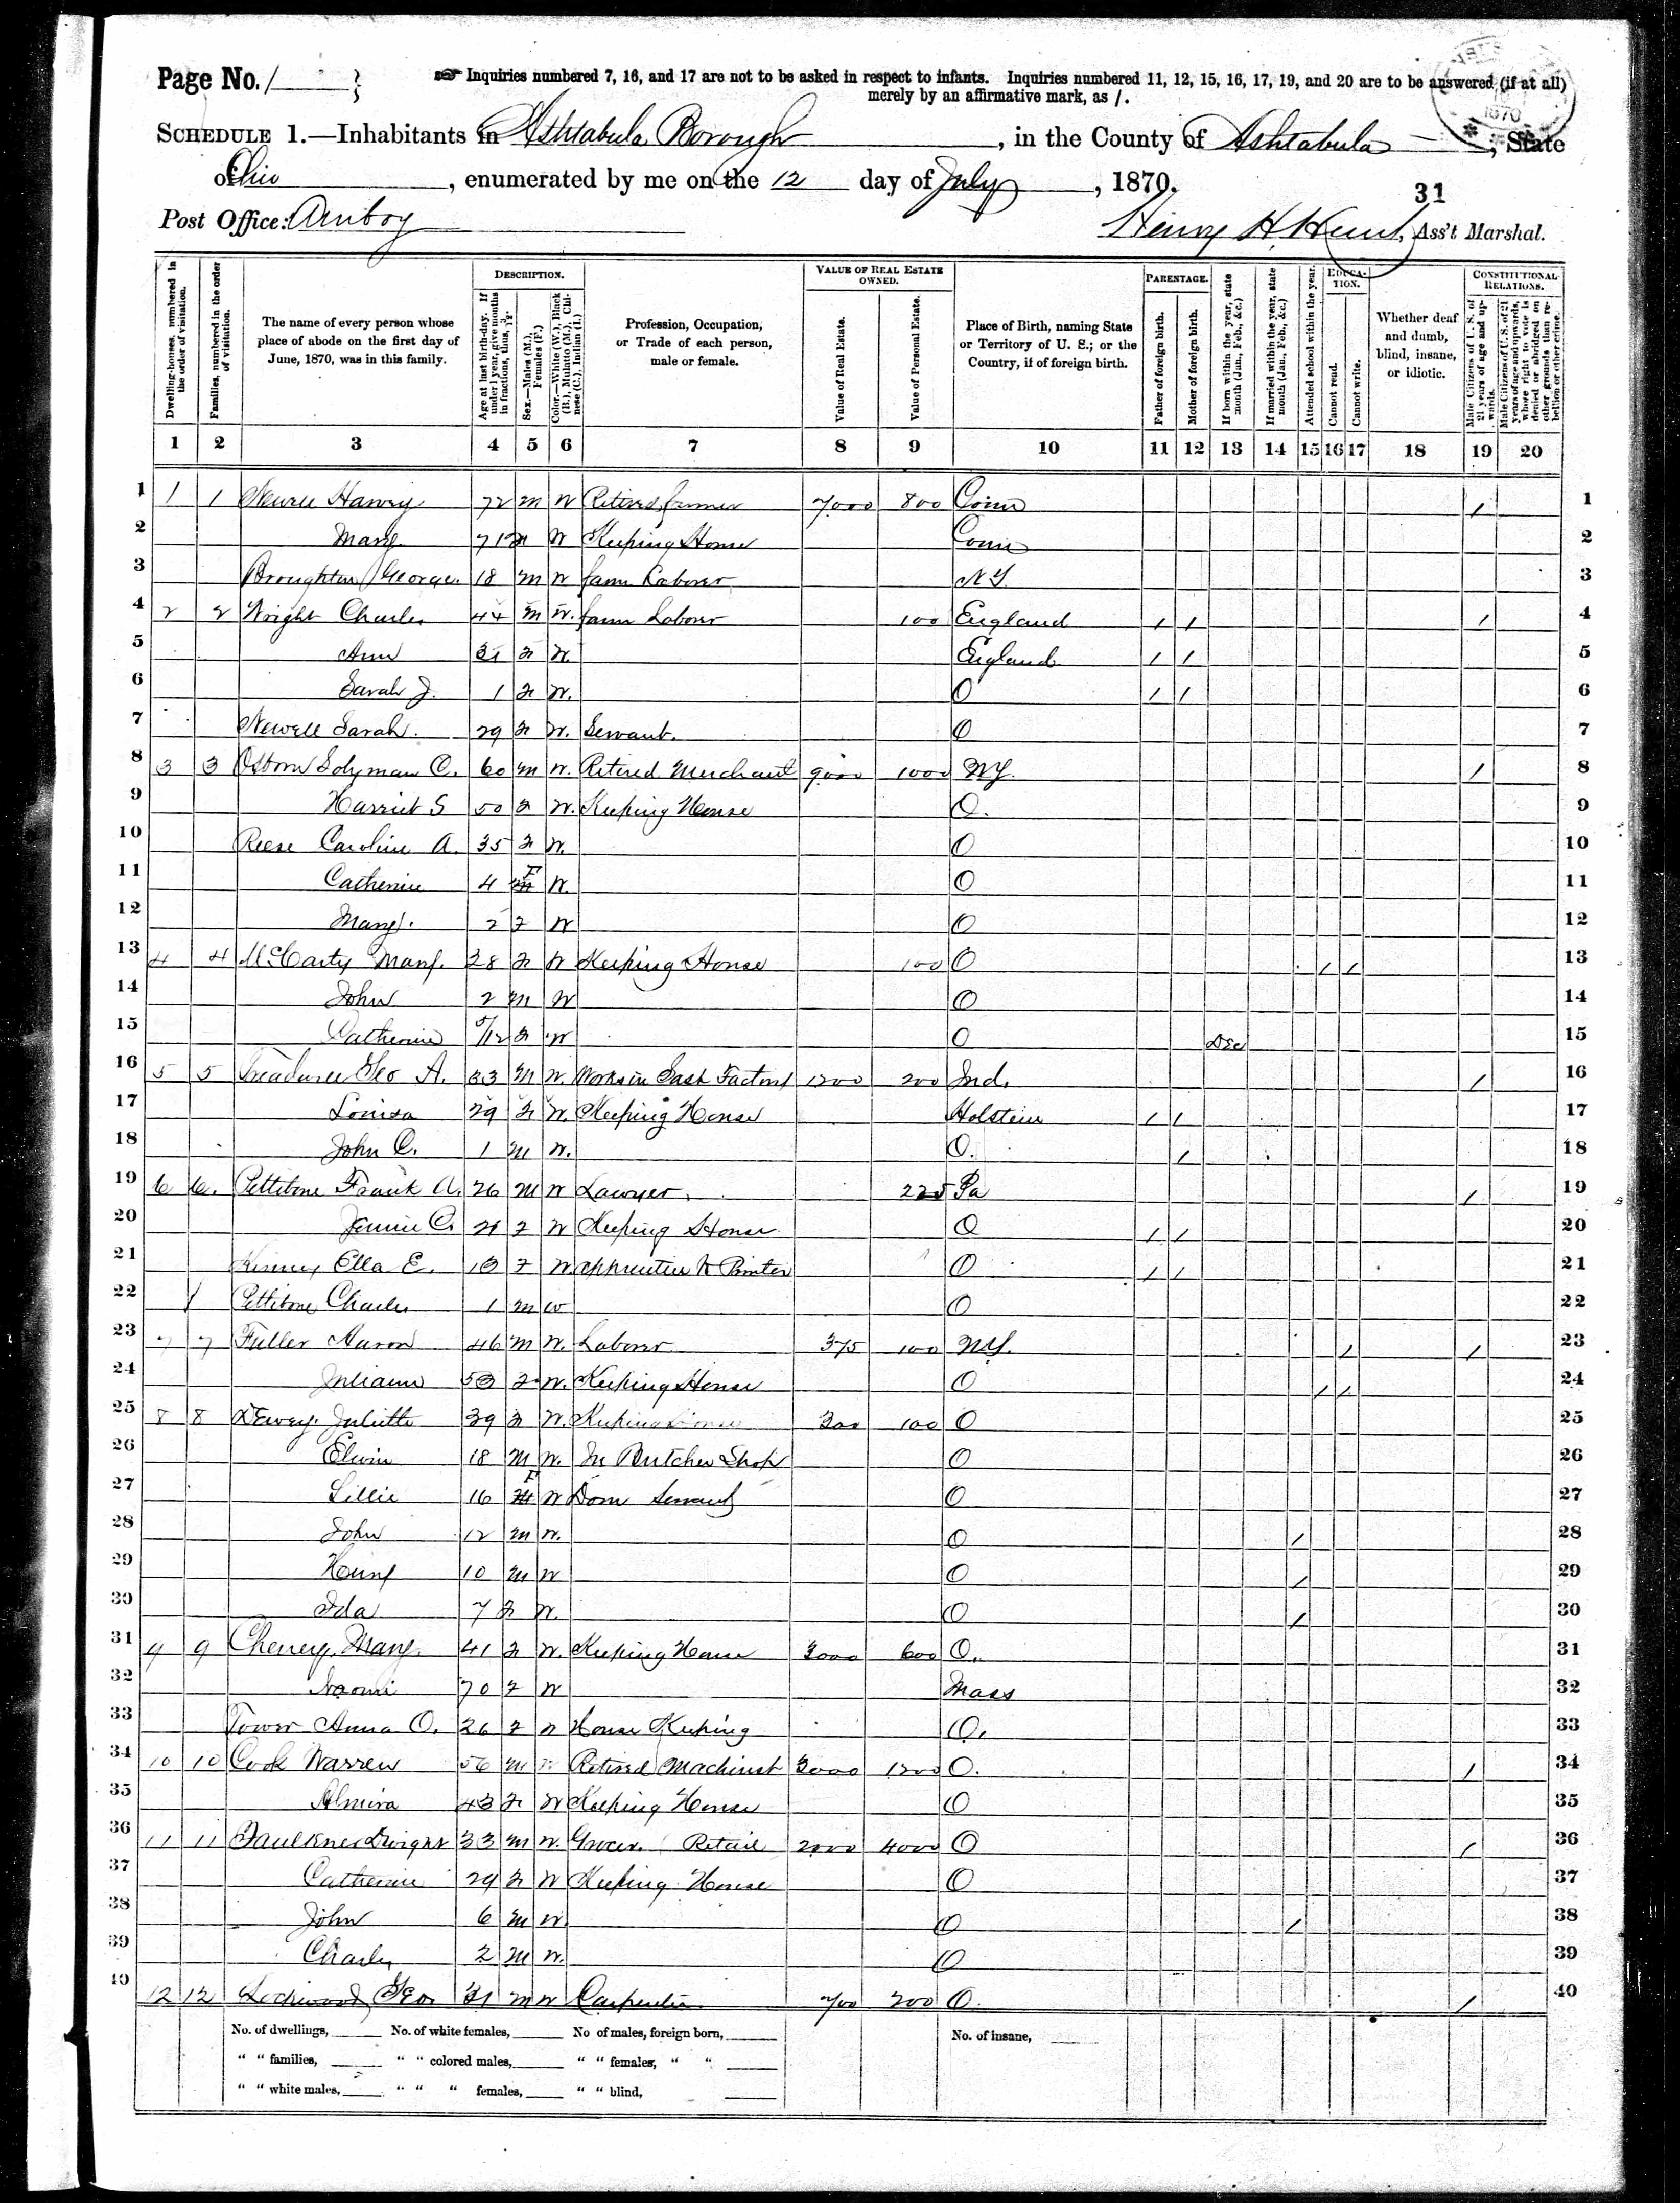 Page No. 1
Inquiries numbered 7, 16, and 17 are not to be asked in respect to infants. Inquiries numbered 11, 12, 15, 16, 17, 19, and 20 are to be answered (if at all)
merely by an affirmative mark, as /.
1870
SCHEDULE 1.—Inhabitants in Ashtabula Borough, in the County of Ashtabula, State
of Ohio, enumerated by me on the 12 day of July, 1870.
31
Post Office: Amboy
Henry H. Hunt, Ass't Marshal.
Dwelling-houses, numbered in the order of visitation.
Families, numbered in the order of visitation.
The name of every person whose place of abode on the first day of June, 1870, was in this family.
DESCRIPTION.
Age at last birth-day. If under 1 year, give months in fractions, thus, 3/12.
Sex.—Males (M.), Females (F.)
Color.—White (W.), Black (B.), Mulatto (M.), Chinese (C.), Indian (I.)
Profession, Occupation, or Trade of each person, male or female.
VALUE OF REAL ESTATE OWNED.
Value of Real Estate.
Value of Personal Estate.
Place of Birth, naming State or Territory of U. S.; or the Country, if of foreign birth.
PARENTAGE.
Father of foreign birth.
Mother of foreign birth.
If born within the year, state month (Jan., Feb., &c.)
If married within the year, state month (Jan., Feb., &c.)
Attended school within the year.
EDUCATION.
Cannot read.
Cannot write.
Whether deaf and dumb, blind, insane, or idiotic.
CONSTITUTIONAL RELATIONS.
Male Citizens of U. S. of 21 years of age and upwards.
Male Citizens of U. S. of 21 years of age and upwards, whose right to vote is denied or abridged on other grounds than rebellion or other crime.
1 2 3 4 5 6 7 8 9 10 11 12 13 14 15 16 17 18 19 20
1 1 1 Newell Harvey 72 M W Retired farmer 7000 800 Conn / 1
2 Mary 71 W Keeping House Conn 2
3 Broughton George 18 M W farm Laborer N Y 3
4 2 2 Wright Charles 44 M W. farm Laborer 100 England / / / 4
5 Ann 31 F W. England / / 5
6 Sarah J. 1 F W. O / / 6
7 Newell Sarah. 29 F W. Servant. O 7
8 3 3 Osborn Solyman C. 60 M W. Retired Merchant 9000 1000 N Y. / 8
9 Harriet S 50 F W. Keeping House O. 9
10 Reese Caroline A. 35 F W. O 10
11 Catherine 4 F W. O 11
12 Mary. 2 F W O 12
13 4 4 McCarty Mary. 28 F W Keeping House 100 O / / 13
14 John 2 M W O 14
15 Catherine 5/12 F W O Dec 15
16 5 5 Geo A. 33 M W. Works in Sash Factory 1200 200 Ind. / 16
17 Louisa 29 F W. Keeping House Holstein / / 17
18 John C. 1 M W. O. / 18
19 6 6. Pettibone Frank A. 26 M W Lawyer. 225 Pa / 19
20 Jennie C. 21 F W Keeping House O / / 20
21 Ella E. F W apprentice to Printer O / / 21
22 Pettibone Charles 1 M W O 22
23 7 7 Fuller Aaron 46 M W. Laborer 375 100 N Y. / / 23
24 Juliann F W. Keeping House O / / 24
25 8 8 Dewey. Juliette 39 F W. Keeping House 300 100 O 25
26 Elwin 18 M W. In Butcher Shop O 26
27 Lillie 16 F W Dom Servant O 27
28 John 12 M W. O / 28
29 Henry 10 M W O / 29
30 Ida 7 F W. O / 30
31 9 9 Cheney. Mary. 41 F W. Keeping House 3000 600 O. 31
32 Naomi 70 F W Mass 32
33 Tower Anna O. 26 F W House Keeping O. 33
34 10 10 Cook Warren 56 M W Retired Machinist 3000 1200 O. / 34
35 Almira 43 F W Keeping House O 35
36 11 11 Faulkner Dwight 33 M W. Grocer. Retail 2000 4000 O / 36
37 Catherine 29 F W Keeping House O 37
38 John 6 M W. O / 38
39 Charles 2 M W. O 39
40 12 12 Lockwood Geo 31 M W Carpenter 700 200 O. / 40
No. of dwellings, No. of white females, No of males, foreign born, No. of insane,
" " families, " " colored males, " " females, " "
" " white males, " " " females, " " blind,